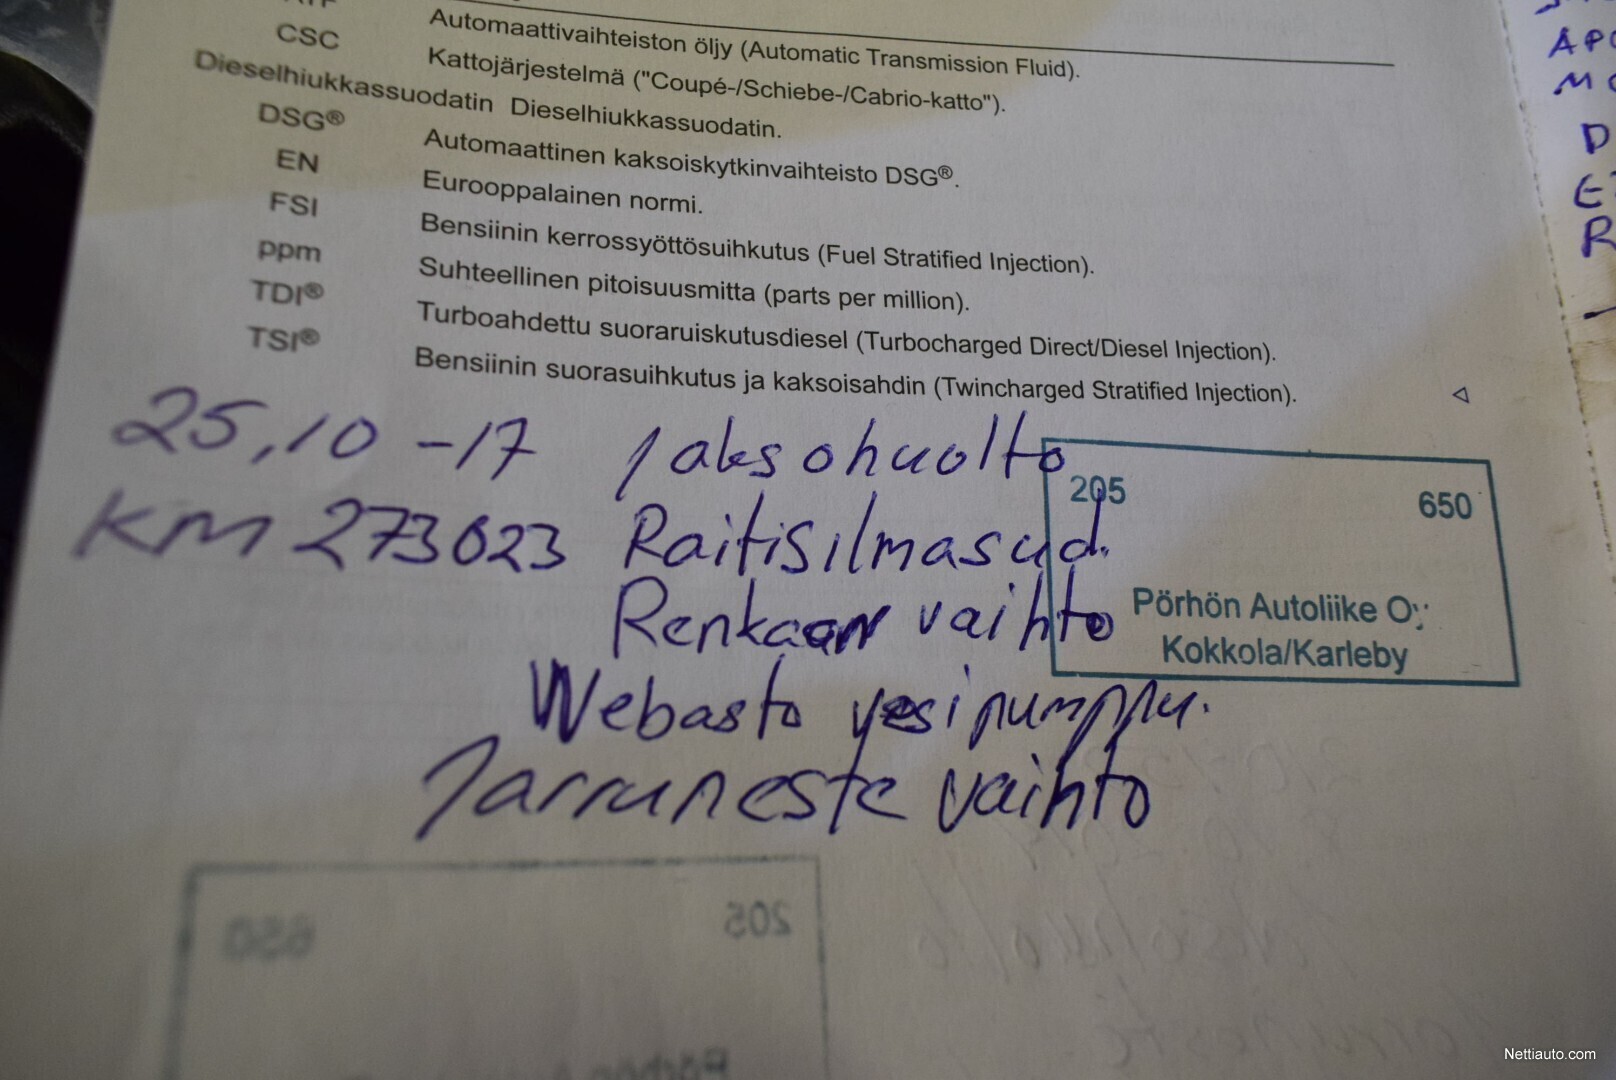 CSC Automaattivaihteiston öljy (Automatic Transmission Fluid).
Kattojärjestelmä ("Coupé-/Schiebe-/Cabrio-katto").
Dieselhiukkassuodatin Dieselhiukkassuodatin.
DSG® Automaattinen kaksoiskytkinvaihteisto DSG®.
EN Eurooppalainen normi.
FSI Bensiinin kerrossyöttösuihkutus (Fuel Stratified Injection).
ppm Suhteellinen pitoisuusmitta (parts per million).
TDI® Turboahdettu suoraruiskutusdiesel (Turbocharged Direct/Diesel Injection).
TSI® Bensiinin suorasuihkutus ja kaksoisahdin (Twincharged Stratified Injection).
25,10 -17 Jaksohuolto
KM 273023 Raitisilmasud.
Renkaan vaihto
Webasto vesipumppu.
Jarruneste vaihto
205 650
Pörhön Autoliike Oy
Kokkola/Karleby
205
650
Nettiauto.com